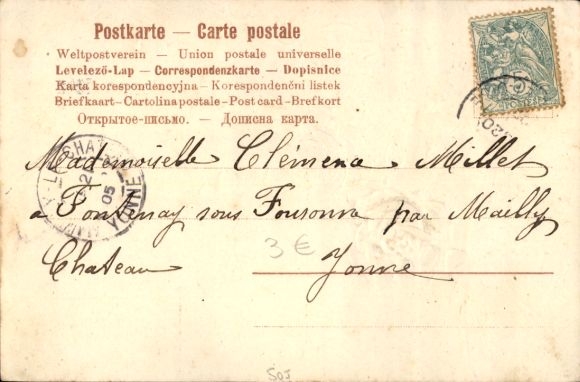 Postkarte — Carte postale
Weltpostverein — Union postale universelle
Levelező-Lap — Correspondenzkarte — Dopisnice
Karta korespondencyjna — Korespondenční listek
Briefkaart — Cartolina postale — Post card — Brefkort
Открытое-письмо. — Дописна карта.
Mademoiselle Clémence Millet
à Fontenay sous Fouronne par Mailly
Chateau Yonne
3 €
LE CHAT
05
YONNE